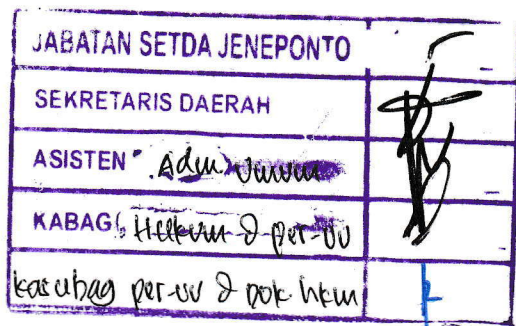 JABATAN SETDA JENEPONTO
SEKRETARIS DAERAH
ASISTEN Adm Umum
KABAG Hukum & per-uu
kasubag per-uu & dok. hkm